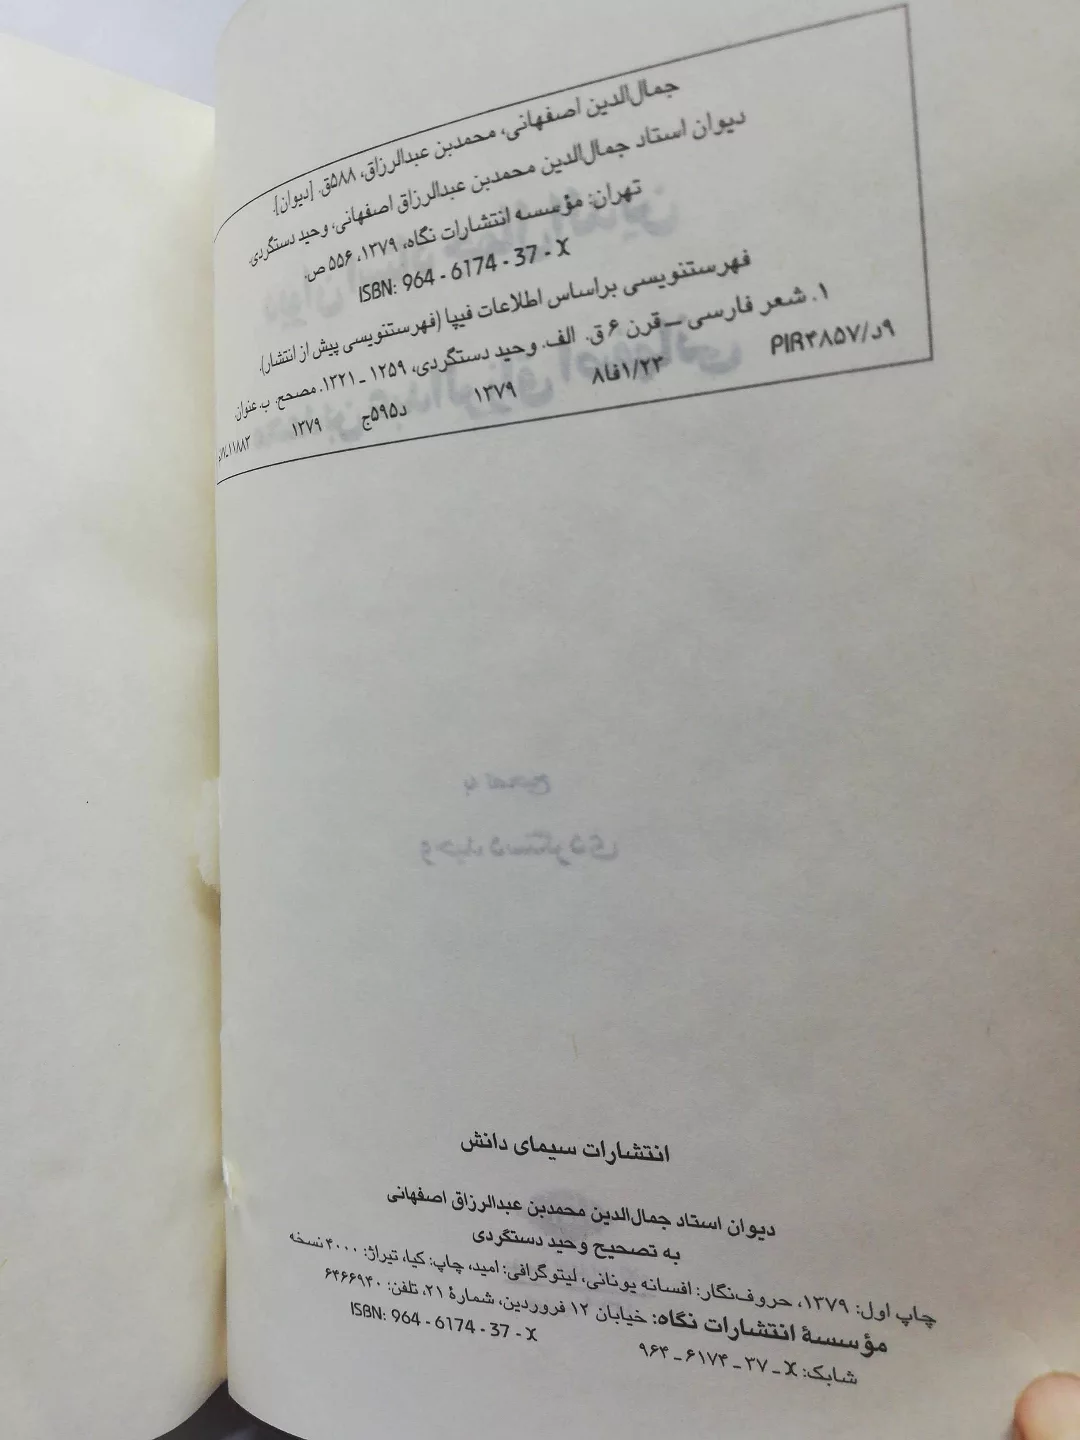 جمال‌الدین اصفهانی، محمدبن عبدالرزاق، ۵۸۸ق. [دیوان].
دیوان استاد جمال‌الدین محمدبن عبدالرزاق اصفهانی، وحید دستگردی.
تهران: مؤسسه انتشارات نگاه، ۱۳۷۹، ۵۵۶ ص.
ISBN: 964 - 6174 - 37 - X
فهرستنویسی براساس اطلاعات فیپا (فهرستنویسی پیش از انتشار).
۱. شعر فارسی ـ قرن ۶ ق. الف. وحید دستگردی، ۱۲۵۹ ـ ۱۳۲۱. مصحح. ب. عنوان.
۹د/PIR۴۸۵۷ ۸فا۱/۲۳ ۱۳۷۹
د۵۹۵ج ۱۳۷۹
انتشارات سیمای دانش
دیوان استاد جمال‌الدین محمدبن عبدالرزاق اصفهانی
به تصحیح وحید دستگردی
چاپ اول: ۱۳۷۹، حروف‌نگار: افسانه یونانی، لیتوگرافی: امید، چاپ: کیا، تیراژ: ۴۰۰۰ نسخه
مؤسسهٔ انتشارات نگاه: خیابان ۱۲ فروردین، شمارهٔ ۲۱، تلفن: ۶۴۶۶۹۴۰
ISBN: 964 - 6174 - 37 - X
شابک: X ـ ۳۷ ـ ۶۱۷۴ ـ ۹۶۴